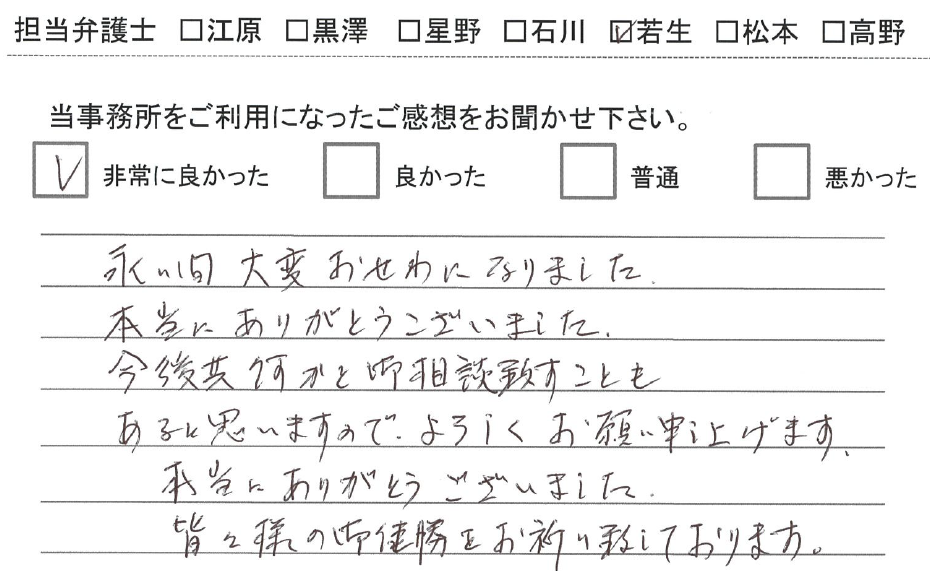 担当弁護士 □江原 □黒澤 □星野 □石川 ☑若生 □松本 □高野
当事務所をご利用になったご感想をお聞かせ下さい。
☑ 非常に良かった □ 良かった □ 普通 □ 悪かった
永い間 大変おせわになりました.
本当にありがとうございました.
今後共何かと御相談致すことも
あると思いますので、よろしくお願い申し上げます.
本当にありがとうございました.
皆々様の御健勝をお祈り致しております。